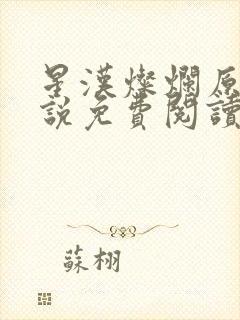 星漢燦爛原
說免費閱讀
蘇栩